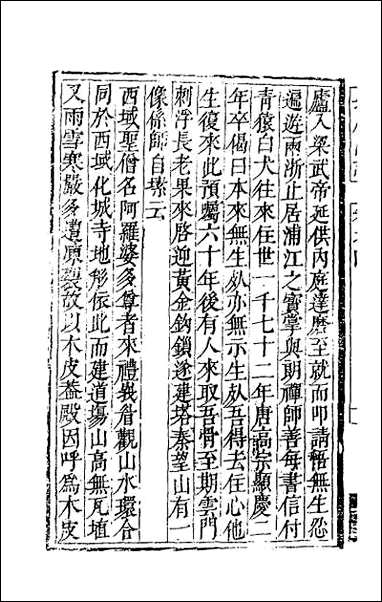 廬入梁武帝延供内庭達磨至就而叩請悟無生忍
遍遊兩浙止居浦江之寳掌與朗禪師善每書信付
青猿白犬往來住世一千七十二年唐高宗顯慶二
年卒偈曰本來無生死亦無示生死吾得去住心他
生復來此預囑六十年後有人來取吾骨至期雲門
刺浮長老果來啓迎黃金鈎鎖遂建塔秦望山有一
像係師自塑云
西域聖僧名阿羅婆多尊者來禮峩眉觀山水環合
同於西域化城寺地形依此而建道場山高無瓦埴
又雨雪寒嚴多遭凍裂故以木皮葢殿因呼爲木皮